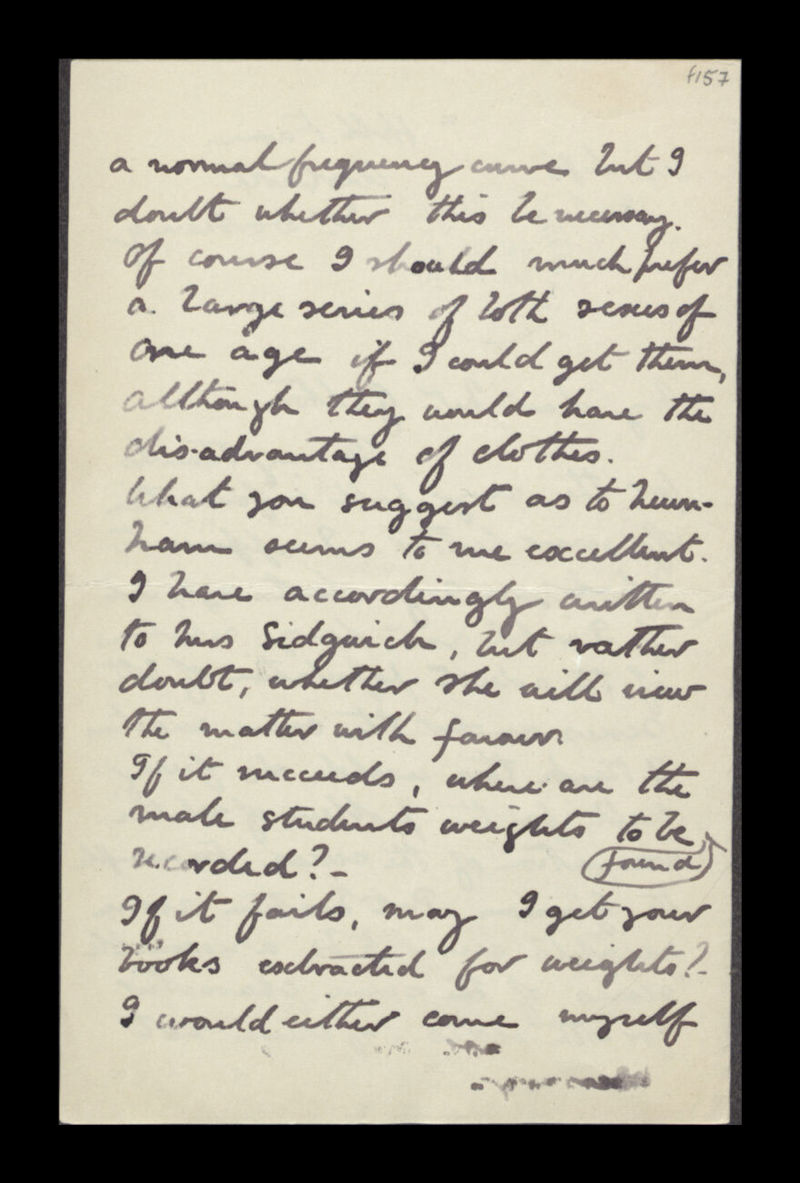 f157
a normal frequency curve but I
doubt whether this be necessary.
Of course I should much prefer
a large series of both sexes of
one age if I could get them,
although they would have the
dis-advantage of clothes.
What you suggest as to Newn-
ham seems to me excellent.
I have accordingly written
to Mrs Sidgwick, but rather
doubt, whether she will view
the matter with favour.
If it succeeds, where are the
male students weights to be
recorded?- found
If it fails, may I get your
books extracted for weights?-
I would either come myself